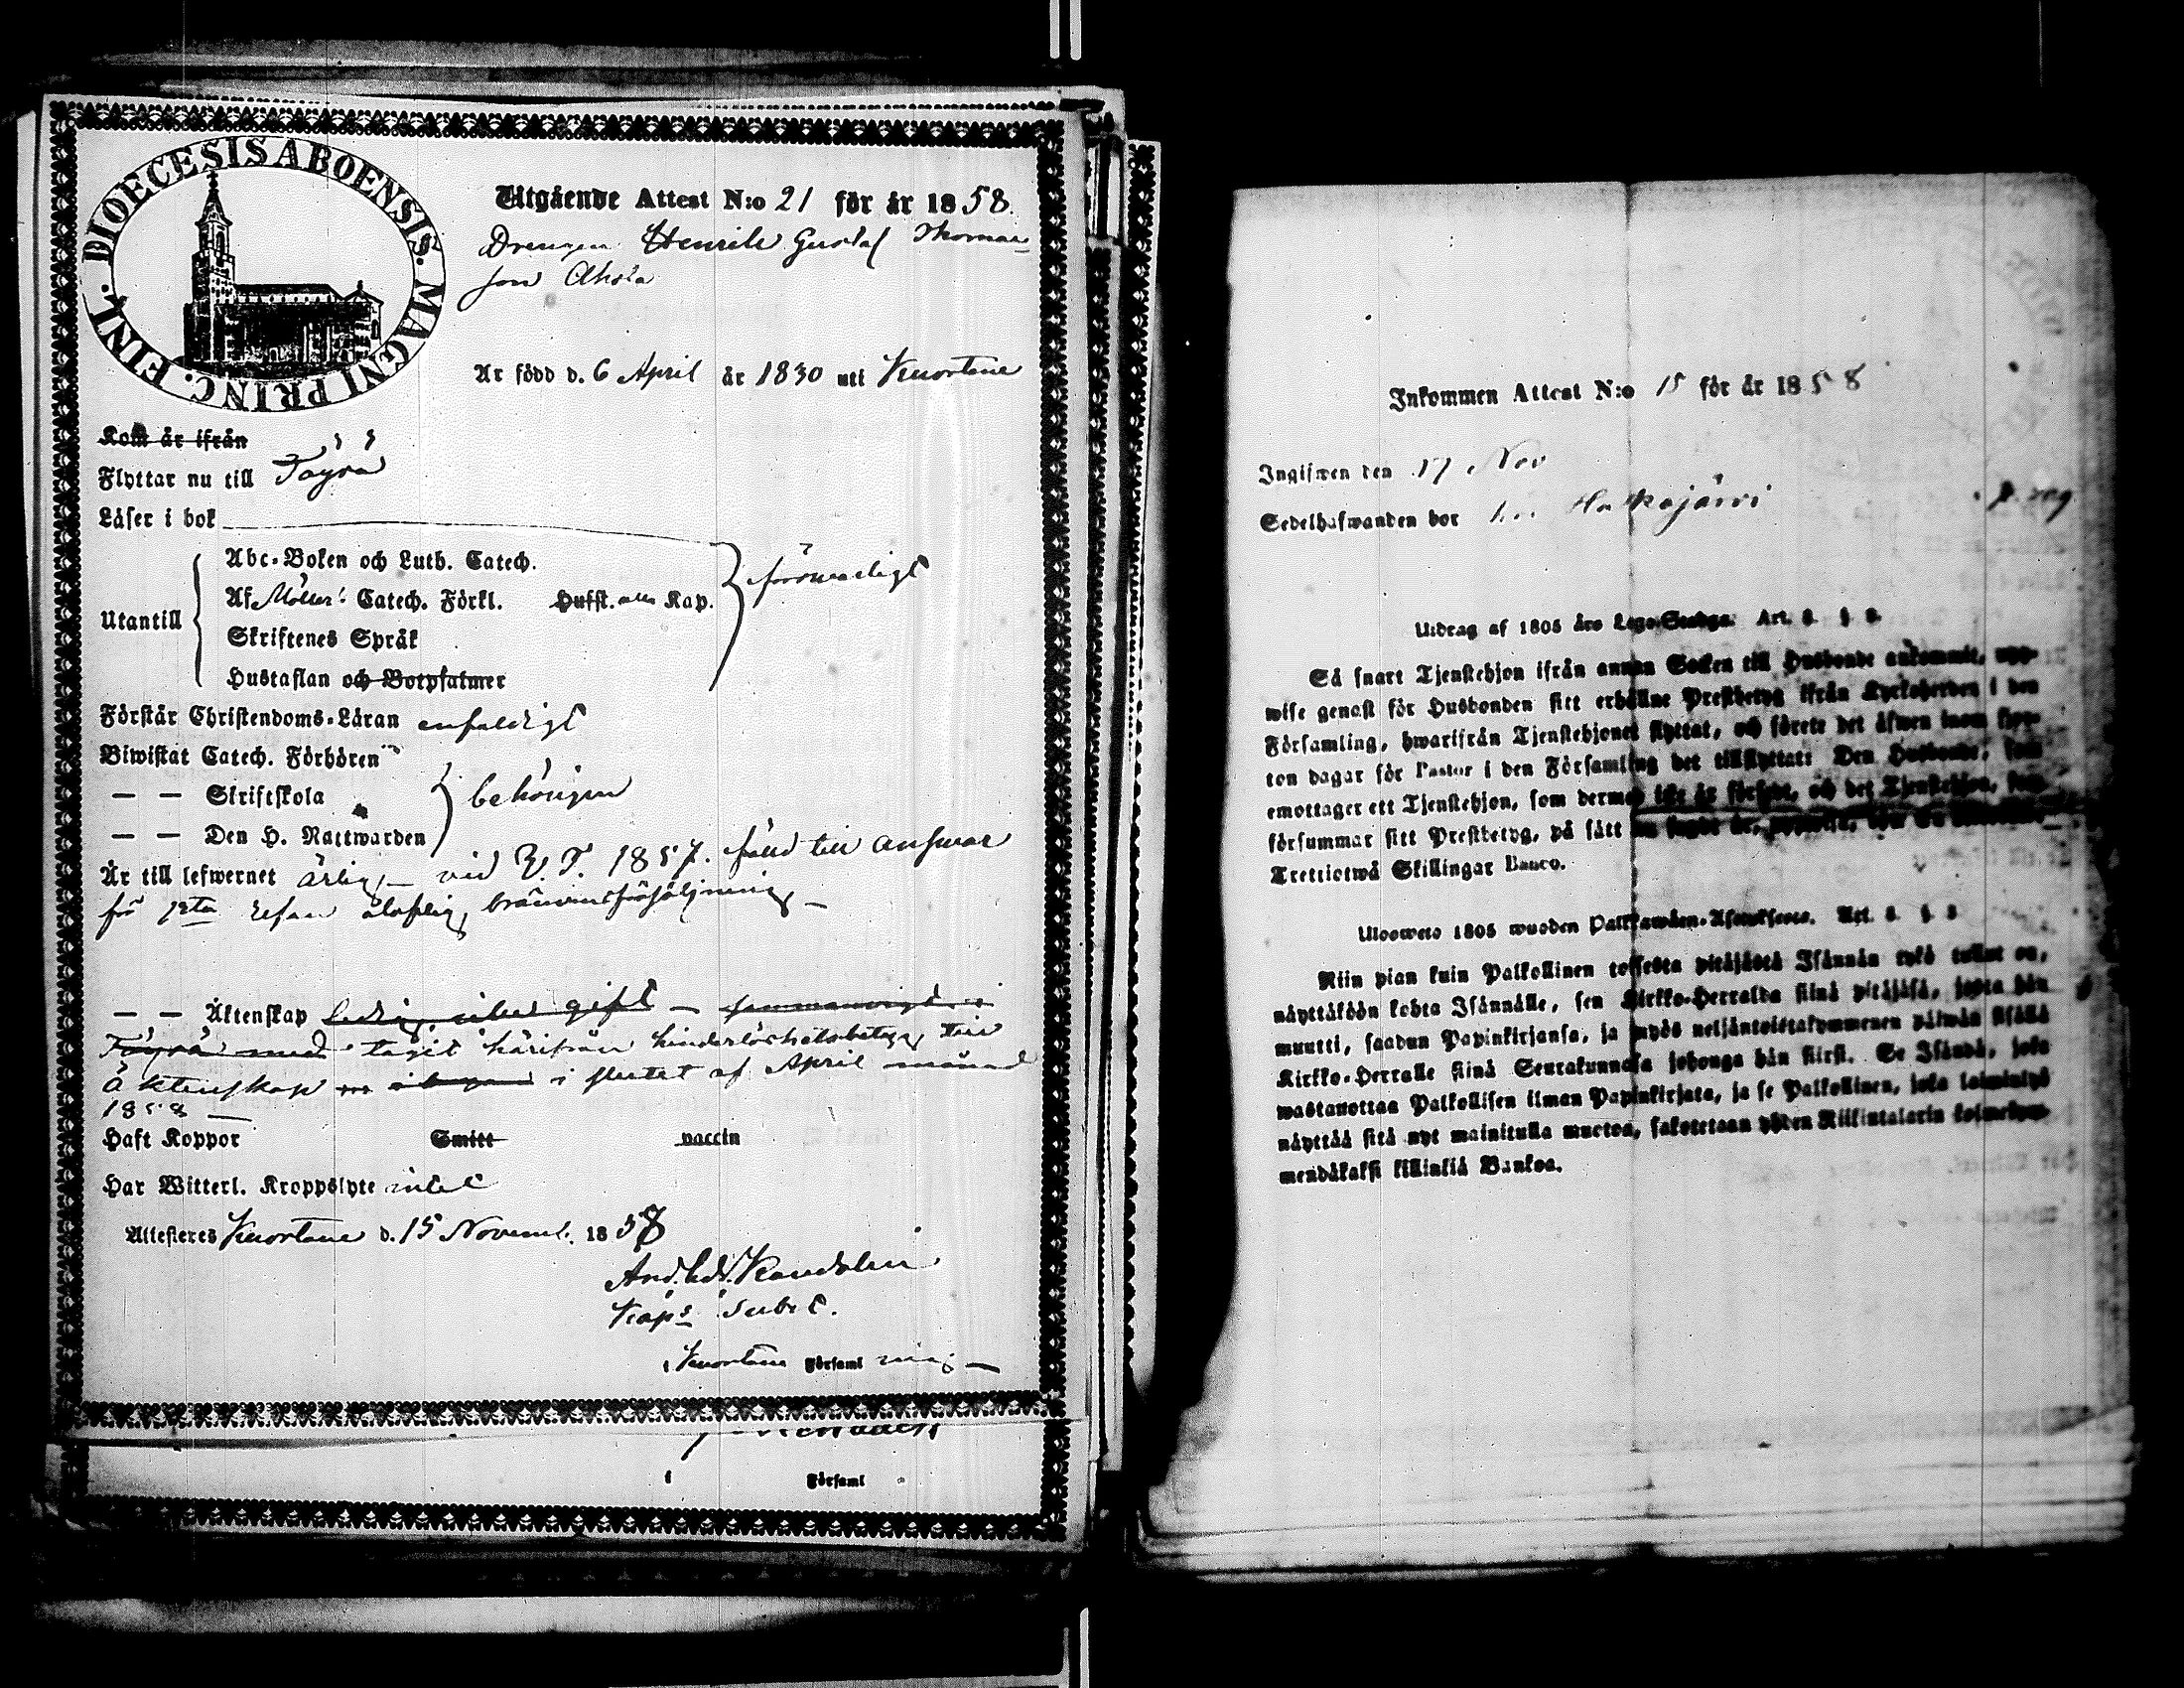 DIOECESIS ABOENSIS. MAGNI PRINC. FINL.
Utgående Attest N:o 21 för år 1858.
Drengen Henrik Gustaf Thomas-
son Ahola
Är född d. 6 April år 1830 uti Kuortane
Kom är ifrån
Flyttar nu till Töysä
Läser i bok
Utantill
Abc-Boken och Luth. Catech.
Af Möllers Catech. Förkl. Hufst. alla Kap.
Skriftenes Språk
Hustaflan och Botpsalmer
försvarligt
Förstår Christendoms-Läran enfaldigt
Biwistat Catech. Förhören
— — Skriftskola
— — Den H. Nattwarden
behörigen
Är till lefwernet ärlig, — vid V. T. 1857 fälld till answar
för 1sta resan olaflig bränvinsförsäljning —
— — Äktenskap ledig, eller gift —
Töysä med tagit härifrån hinderlöshetsbetyg till
äktenskap i slutet af April månad
1858 —
Haft Koppor Smitt vaccin
Har Witterl. Kroppslyte intet
Attesteras Kuortane d. 15 Novemb. 1858
And. Edv. Randelin
Kaps Subst.
i Kuortane Församl ning —
i Församl
Inkommen Attest N:o 15 för år 1858
Ingifwen den 17 Nov
Sedelhafwanden bor
Utdrag af 1805 års Lego-Stadga. Art. 8. § 8.
Så snart Tjenstehjon ifrån annan Socken till Husbonde ankommit, upp-
wise genast för Husbonden sitt erhållne Prestbetyg ifrån Kyrkoherden i den
Församling, hwarifrån Tjenstehjonet flyttat, och förete det äfwen inom fjor-
ton dagar för Pastor i den Församling det tillflyttat: Den Husbonde, som
emottager ett Tjenstehjon, som dermed icke är försedt, och det Tjenstehjon, som
försummar sitt Prestbetyg, på sätt
Trettiotwå Skillingar Banco.
Ulosweto 1805 wuoden Palkkawäen-Asetuksesta. Art. 8. § 8
Niin pian kuin Palkollinen toisesta pitäjästä Isännän tykö tullut on,
näyttäköön kohta Isännälle, sen Kirkko-Herralda siinä pitäjäsä, josta hän
muutti, saadun Papinkirjansa, ja myös neljäntoistakymmenen päiwän sisällä
Kirkko-Herralle siinä Seurakunnasa johonga hän siirsi. Se Isändä, joka
wastanottaa Palkollisen ilman Papinkirjata, ja se Palkollinen, joka laiminlyö
näyttää sitä nyt mainitulla muotoa, sakotetaan yhden Riikintalarin kolmekym-
mendäkaksi killinkiä Bankoa.